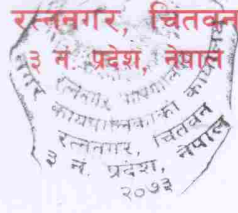 रत्ननगर, चितवन
३ नं. प्रदेश, नेपाल
नगर कार्यपालिकाको कार्यालय
रत्ननगर, चितवन
३ नं. प्रदेश, नेपाल
२०७३